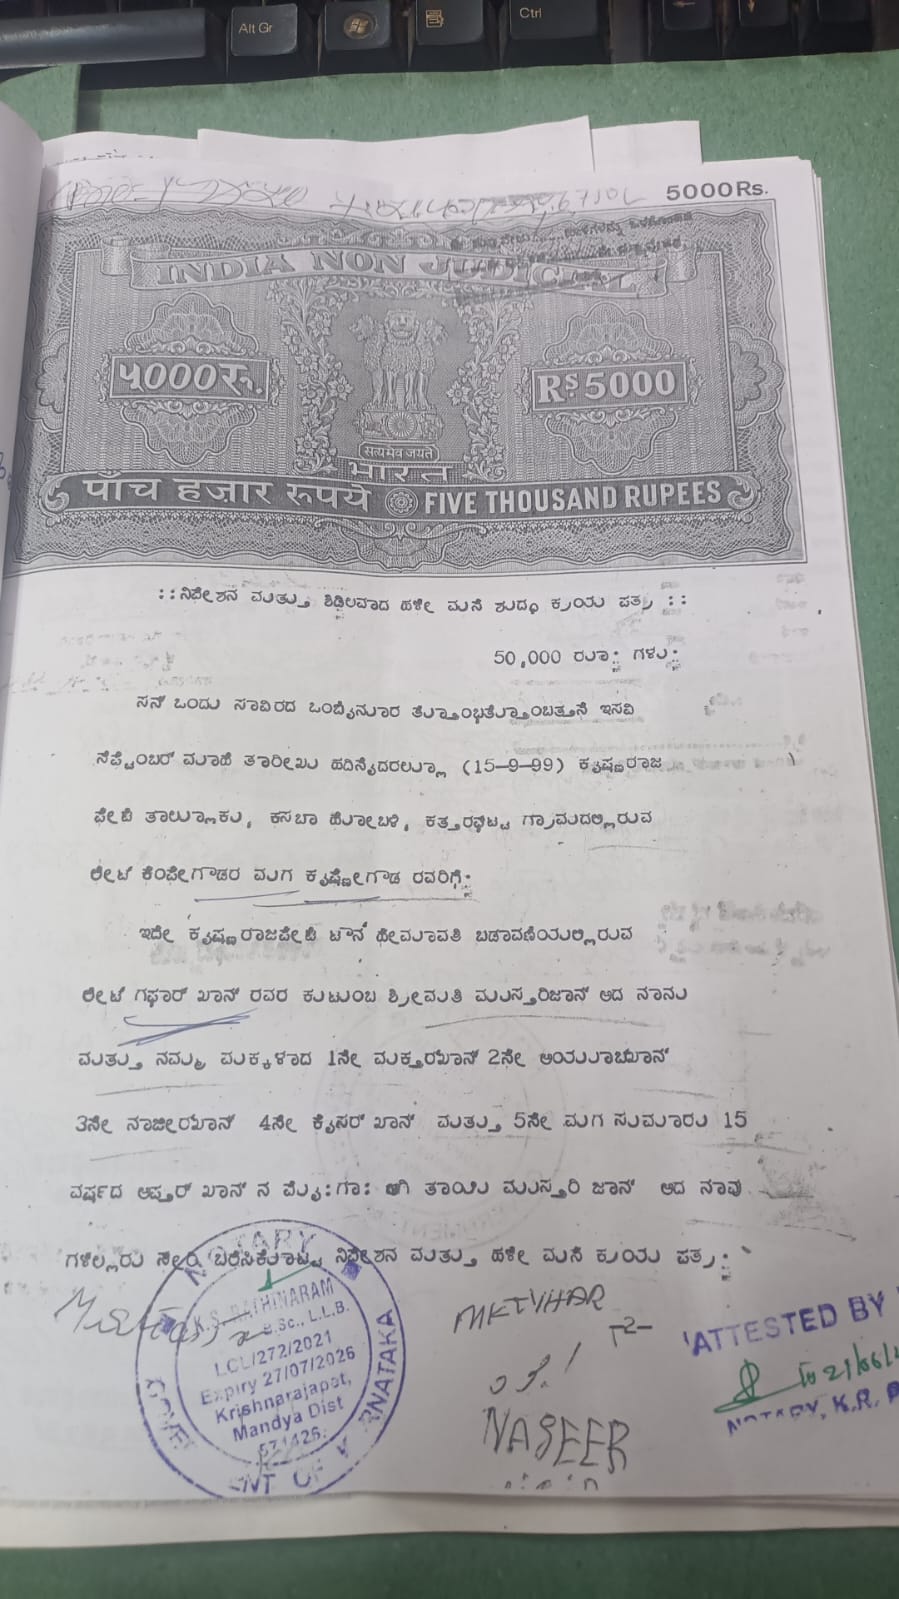 Alt Gr
Ctrl
5000 Rs.
INDIA NON JUDICIAL
५000रु.
RS 5000
सत्यमेव जयते
भारत
पाँच हजार रूपये FIVE THOUSAND RUPEES
::ನಿವೇಶನ ಮತ್ತು ಶಿಥಿಲವಾದ ಹಳೇ ಮನೆ ಶುದ್ಧ ಕ್ರಯ ಪತ್ರ ::
50,000 ರೂ: ಗಳು:
ಸನ್ ಒಂದು ಸಾವಿರದ ಒಂಬೈನೂರ ತೊಂಭತ್ತೊಂಬತ್ತನೆ ಇಸವಿ
ಸೆಪ್ಟೆಂಬರ್ ಮಾಹೆ ತಾರೀಖು ಹದಿನೈದರಲ್ಲೂ (15-9-99) ಕೃಷ್ಣರಾಜ
ಪೇಟೆ ತಾಲ್ಲೂಕು, ಕಸಬಾ ಹೋಬಳಿ, ಕತ್ತರಘಟ್ಟ ಗ್ರಾಮದಲ್ಲಿರುವ
ಲೇಟ್ ಕೆಂಪೇಗೌಡರ ಮಗ ಕೃಷ್ಣೇಗೌಡ ರವರಿಗೆ:
ಇದೇ ಕೃಷ್ಣರಾಜಪೇಟೆ ಟೌನ್ ಹೇಮಾವತಿ ಬಡಾವಣೆಯಲ್ಲಿರುವ
ಲೇಟ್ ಗಫಾರ್ ಖಾನ್ ರವರ ಕುಟುಂಬ ಶ್ರೀಮತಿ ಮುಸ್ತರಿಜಾನ್ ಆದ ನಾನು
ಮತ್ತು ನಮ್ಮ ಮಕ್ಕಳಾದ 1ನೇ ಮುಕ್ತರಖಾನ್ 2ನೇ ಅಯೂಬಖಾನ್
3ನೇ ನಾಜೀರಖಾನ್ 4ನೇ ಕೈಸರ್ ಖಾನ್ ಮತ್ತು 5ನೇ ಮಗ ಸುಮಾರು 15
ವರ್ಷದ ಅಪ್ಸರ್ ಖಾನ್ ನ ಮೈ:ಗಾ: ಆಗಿ ತಾಯಿ ಮುಸ್ತರಿ ಜಾನ್ ಆದ ನಾವು
ಗಳೆಲ್ಲರು ಸೇರಿ ಬರೆಸಿಕೊಟ್ಟ ನಿವೇಶನ ಮತ್ತು ಹಳೇ ಮನೆ ಕ್ರಯ ಪತ್ರ:
NOTARY
K.S. RATHINARAM
B.Sc., L.L.B.
LCL/272/2021
Expiry 27/07/2026
Krishnarajapet,
Mandya Dist
571426.
GOVERNMENT OF KARNATAKA
MKTVHAR
NASEER
ATTESTED BY
NOTARY, K.R.